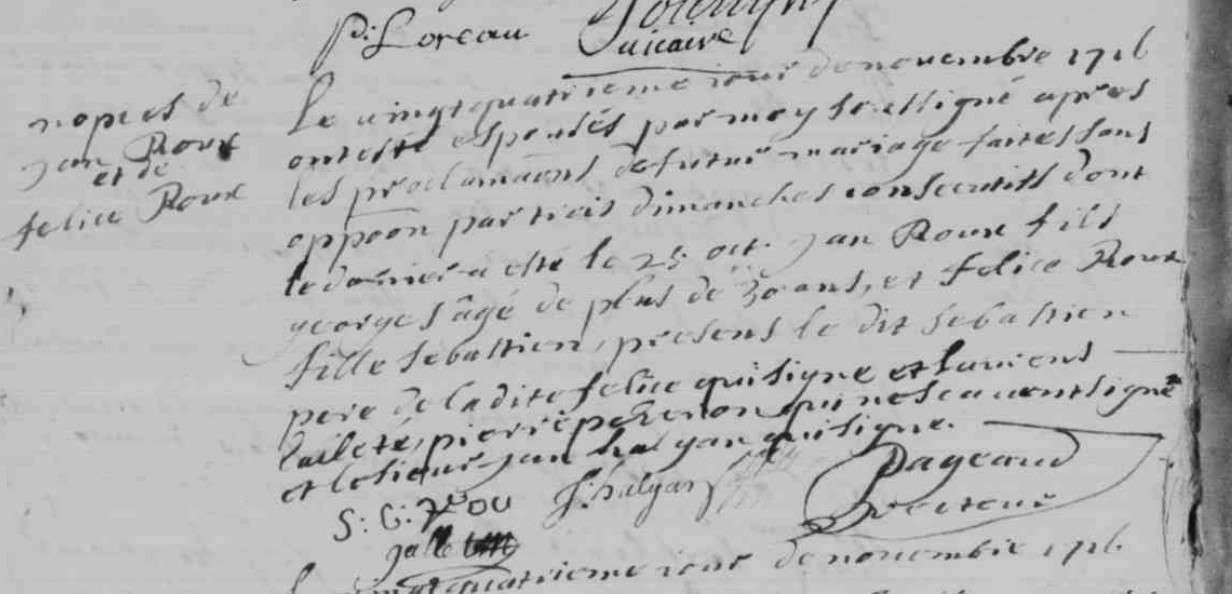 P: Loreau
vicaire
nopces de
jan Roux
et de
felice Roux
Le vingtquatrieme jour de novembre 1716
ont esté espousés par moy soussigné apres
les proclamaons de futur mariage faites sans
oppoon par trois dimanches consecutifs dont
le dernier a esté le 25 oct. jan Roux fils
georges âgé de plus de 30 ans, et felice Roux
fille sebastien, presens le dit sebastien
pere de la dite felice qui signe et
pierre qui ne scavent signer
et le sieur jan halgan qui signe.
S: G: ROU
J: halgan
Pageaud
Recteur
galle
Le vingtquatrieme jour de novembre 1716.